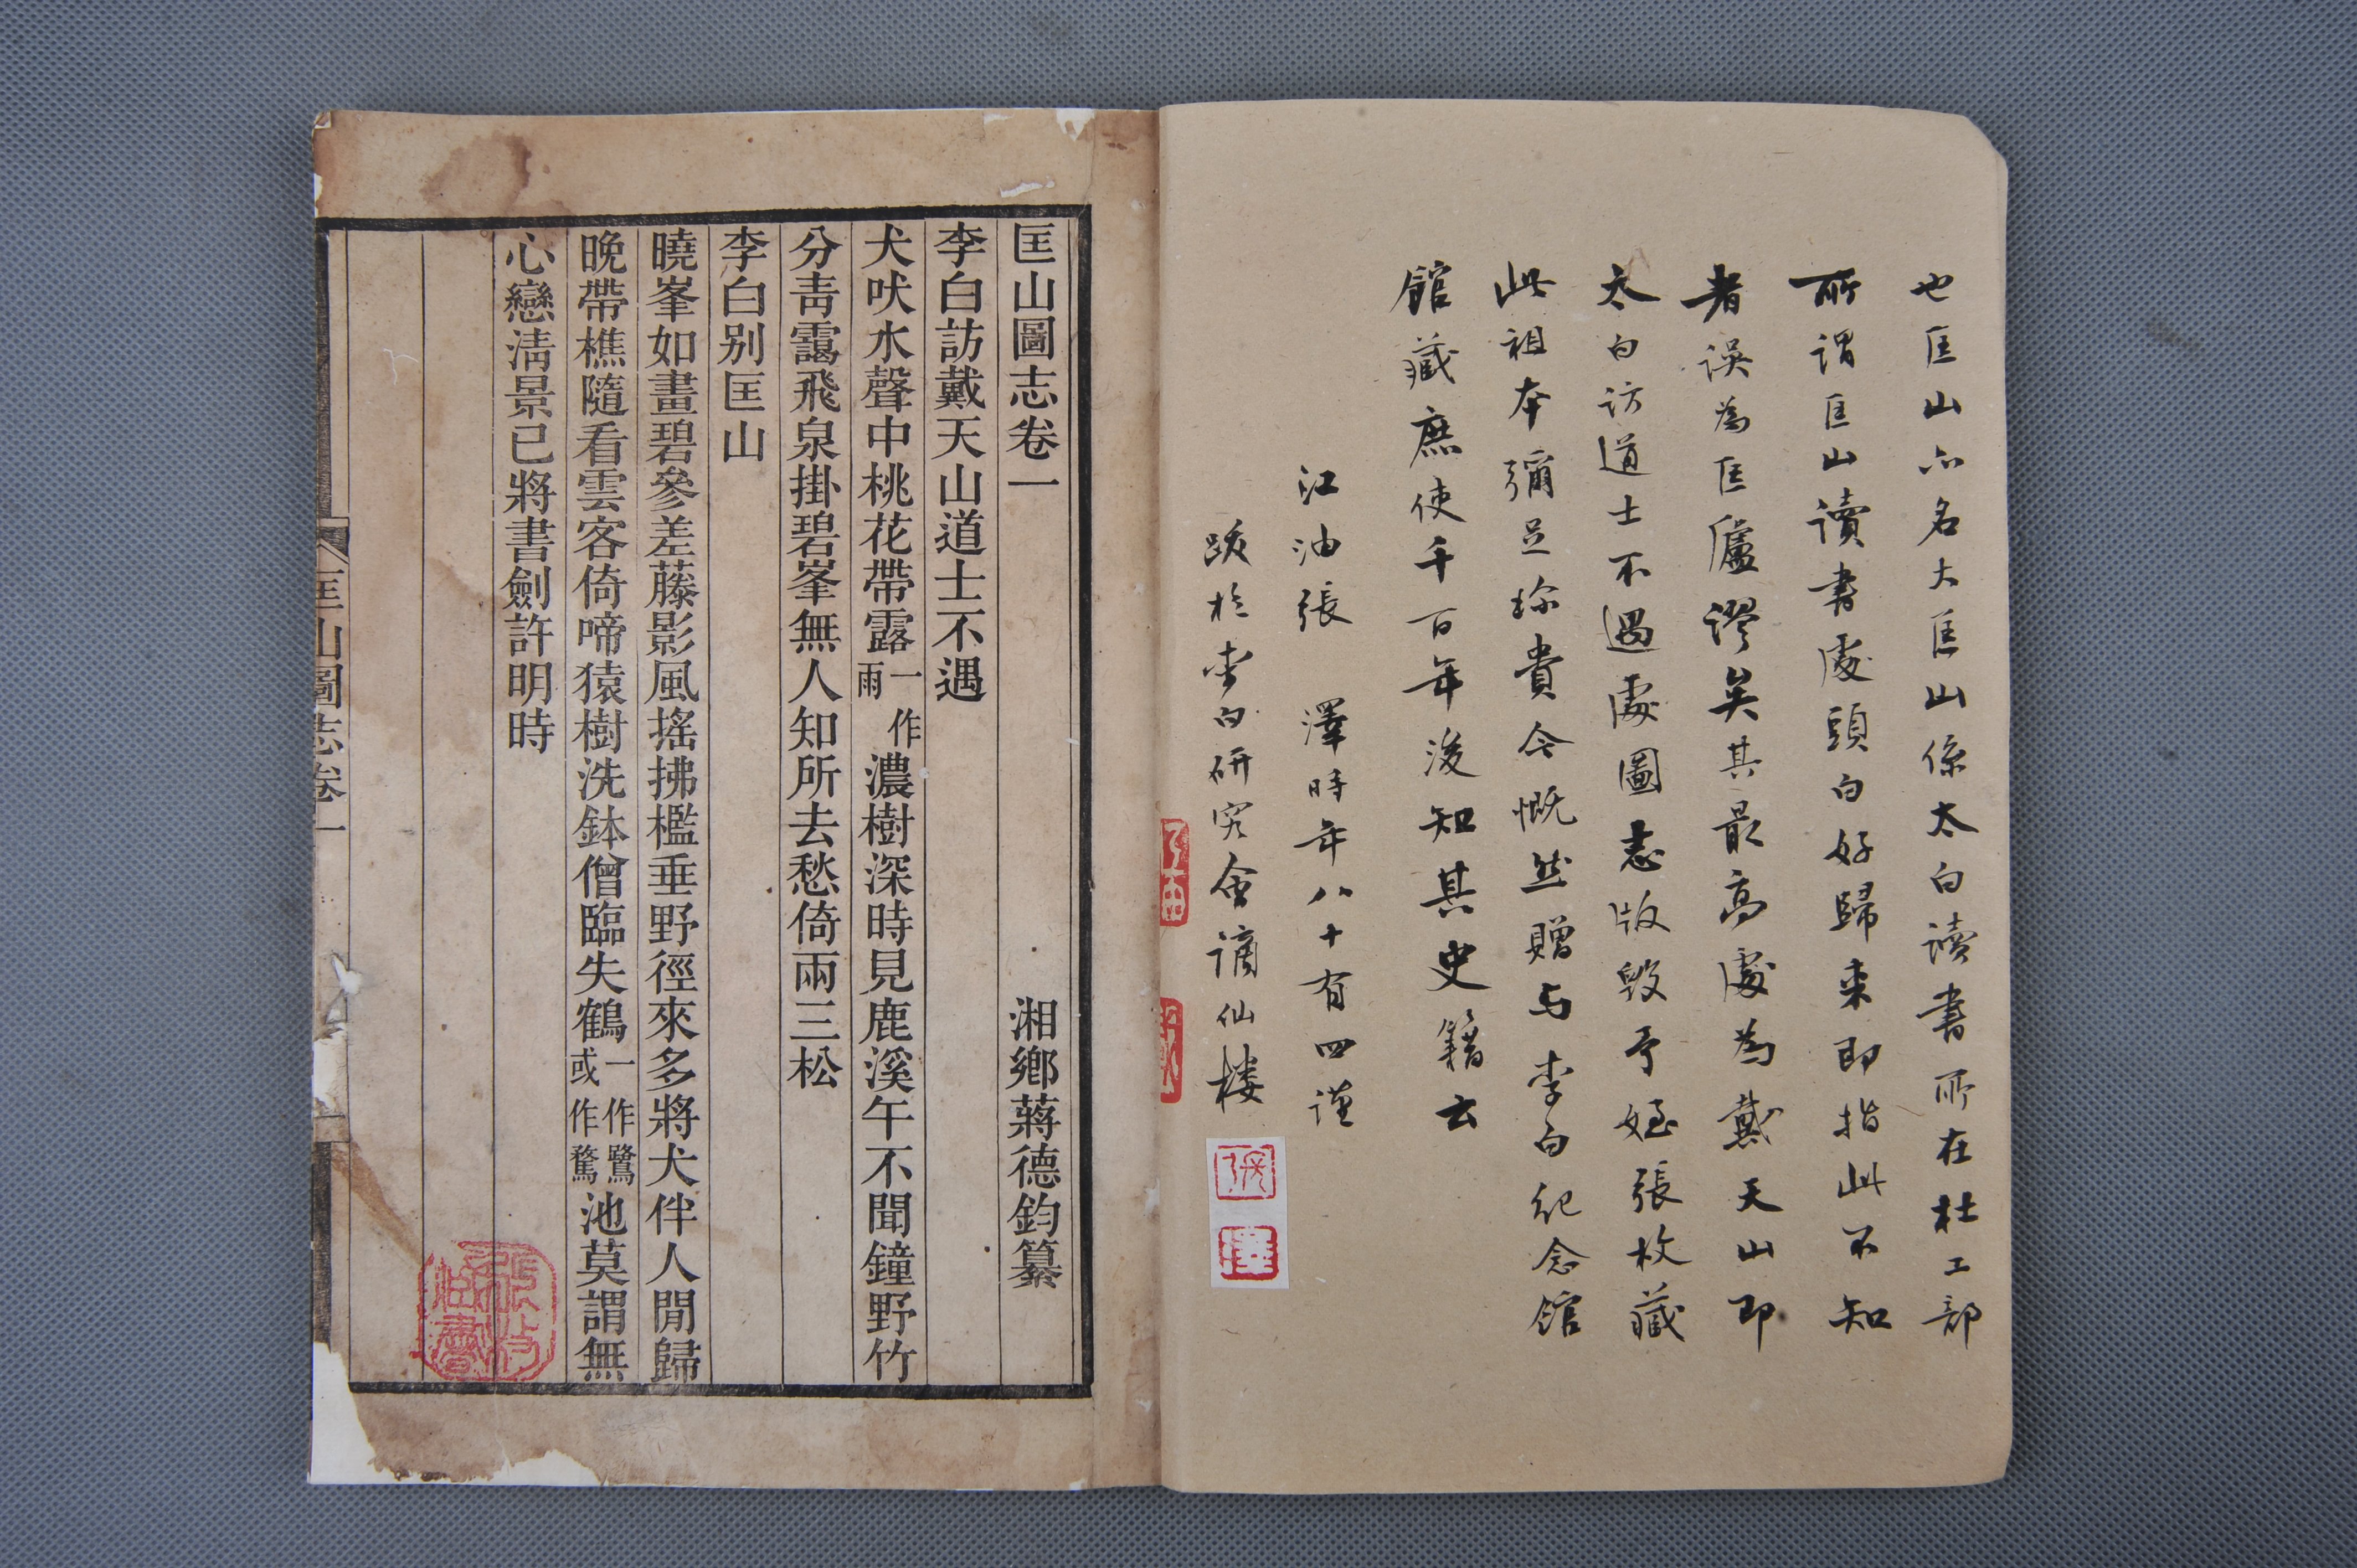 也匡山亦名大匡山係太白读書所在杜工部
所謂匡山讀書處頭白好歸来即指此不知
者誤為匡廬謬矣其最高處為戴天山即
太白访道士不遇處圖志版毁予姪張枚藏
此祖本彌足珍貴今慨然赠与李白纪念館
館藏庶使千百年後知其史籍云
江油張澤時年八十有四謹
跋於李白研究會謫仙楼
張
澤
匡山圖志卷一
湘鄉蔣德鈞纂
李白訪戴天山道士不遇
犬吠水聲中桃花帶露一作雨濃樹深時見鹿溪午不聞鐘野竹
分靑靄飛泉掛碧峯無人知所去愁倚兩三松
李白别匡山
曉峯如畫碧參差藤影風搖拂檻垂野徑來多將犬伴人閒歸
晚帶樵隨看雲客倚啼猿樹洗鉢僧臨失鶴一作鷺或作鶩池莫謂無
心戀淸景已將書劍許明時
匡山圖志卷一